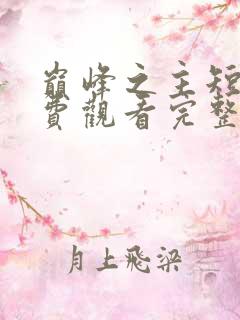 巔峰之主短
費觀看完整
月上飛梁